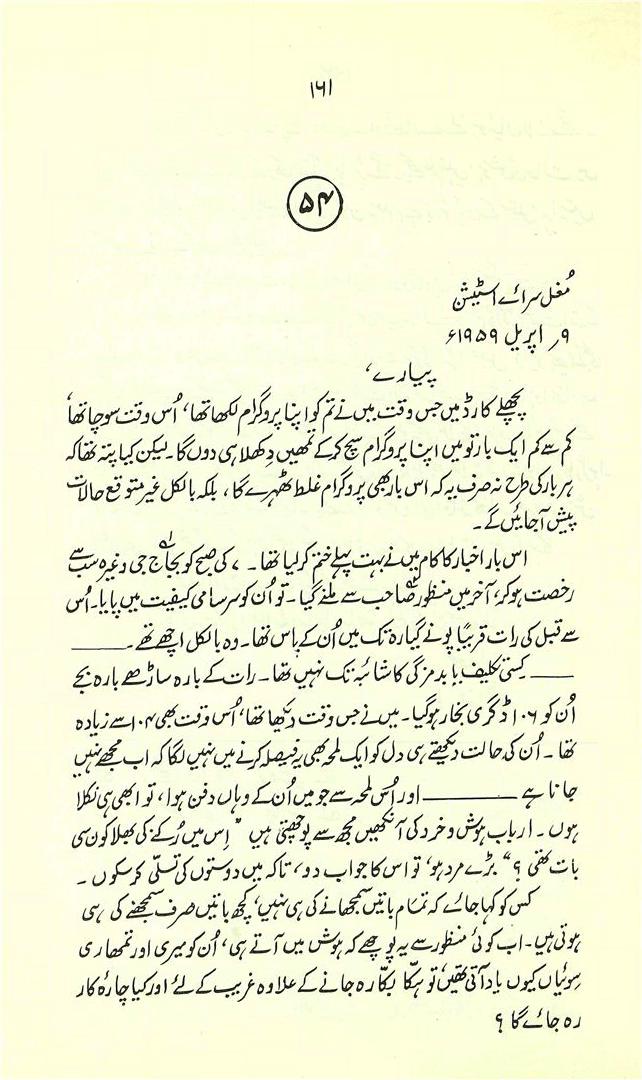 ۱۶۱
۵۴
مُغل سرائے اسٹیشن
۹؍ اپریل ۱۹۵۹ء
پیارے،
پچھلے کارڈ میں جس وقت میں نے تم کو اپنا پروگرام لکھا تھا، اُس وقت سوچا تھا
کم سے کم ایک بار تو میں اپنا پروگرام سچ کرکے تمھیں دِکھلا ہی دوں گا۔ لیکن کیا پتہ تھا کہ
ہر بار کی طرح نہ صرف یہ کہ اس بار بھی پروگرام غلط ٹھہرے گا، بلکہ بالکل غیر متوقع حالات
پیش آجائیں گے۔
اس بار اخبار کا کام میں نے بہت پہلے ختم کرلیا تھا۔ ۷ کی صبح کو بجاج جی وغیرہ سب سے
رخصت ہوکر، آخر میں منظور صاحب سے ملنے گیا۔ تو اُن کو سرسامی کیفیت میں پایا۔ اُس
سے قبل کی رات قریباً پونے گیارہ تک میں اُن کے پاس تھا۔ وہ بالکل اچھے تھے ــــــــ
ــــــــ کِسی تکلیف یا بدمزگی کا شائبہ تک نہیں تھا۔ رات کے بارہ ساڑھے بارہ بجے
اُن کو ۱۰۶ ڈگری بخار ہوگیا۔ میں نے جس وقت دیکھا تھا، اُس وقت بھی ۱۰۴ سے زیادہ
تھا۔ اُن کی حالت دیکھتے ہی دل کو ایک لمحہ بھی یہ فیصلہ کرنے میں نہیں لگا کہ اب مجھے نہیں
جانا ہے ــــــــ اور اُس لمحہ سے جو میں اُن کے وہاں دفن ہوا، تو ابھی ہی نکلا
ہوں۔ ارباب ہوش و خرد کی آنکھیں مجھ سے پوچھتی ہیں "اِس میں رُکنے کی بھلا کون سی
بات تھی؟" بڑے مرد ہو، تو اس کا جواب دو، تاکہ میں دوستوں کی تسلّی کرسکوں۔
کس کو کہا جائے کہ تمام باتیں سمجھانے کی ہی نہیں، کچھ باتیں صرف سمجھنے کی ہی
ہوتی ہیں۔ اب کوئی منظور سے یہ پوچھے کہ ہوش میں آتے ہی، اُن کو میری اور تمھاری
سوئیاں کیوں یاد آتی تھیں، تو ہکّا بکّا رہ جانے کے علاوہ غریب کے لئے اور کیا چارۂ کار
رہ جائے گا؟